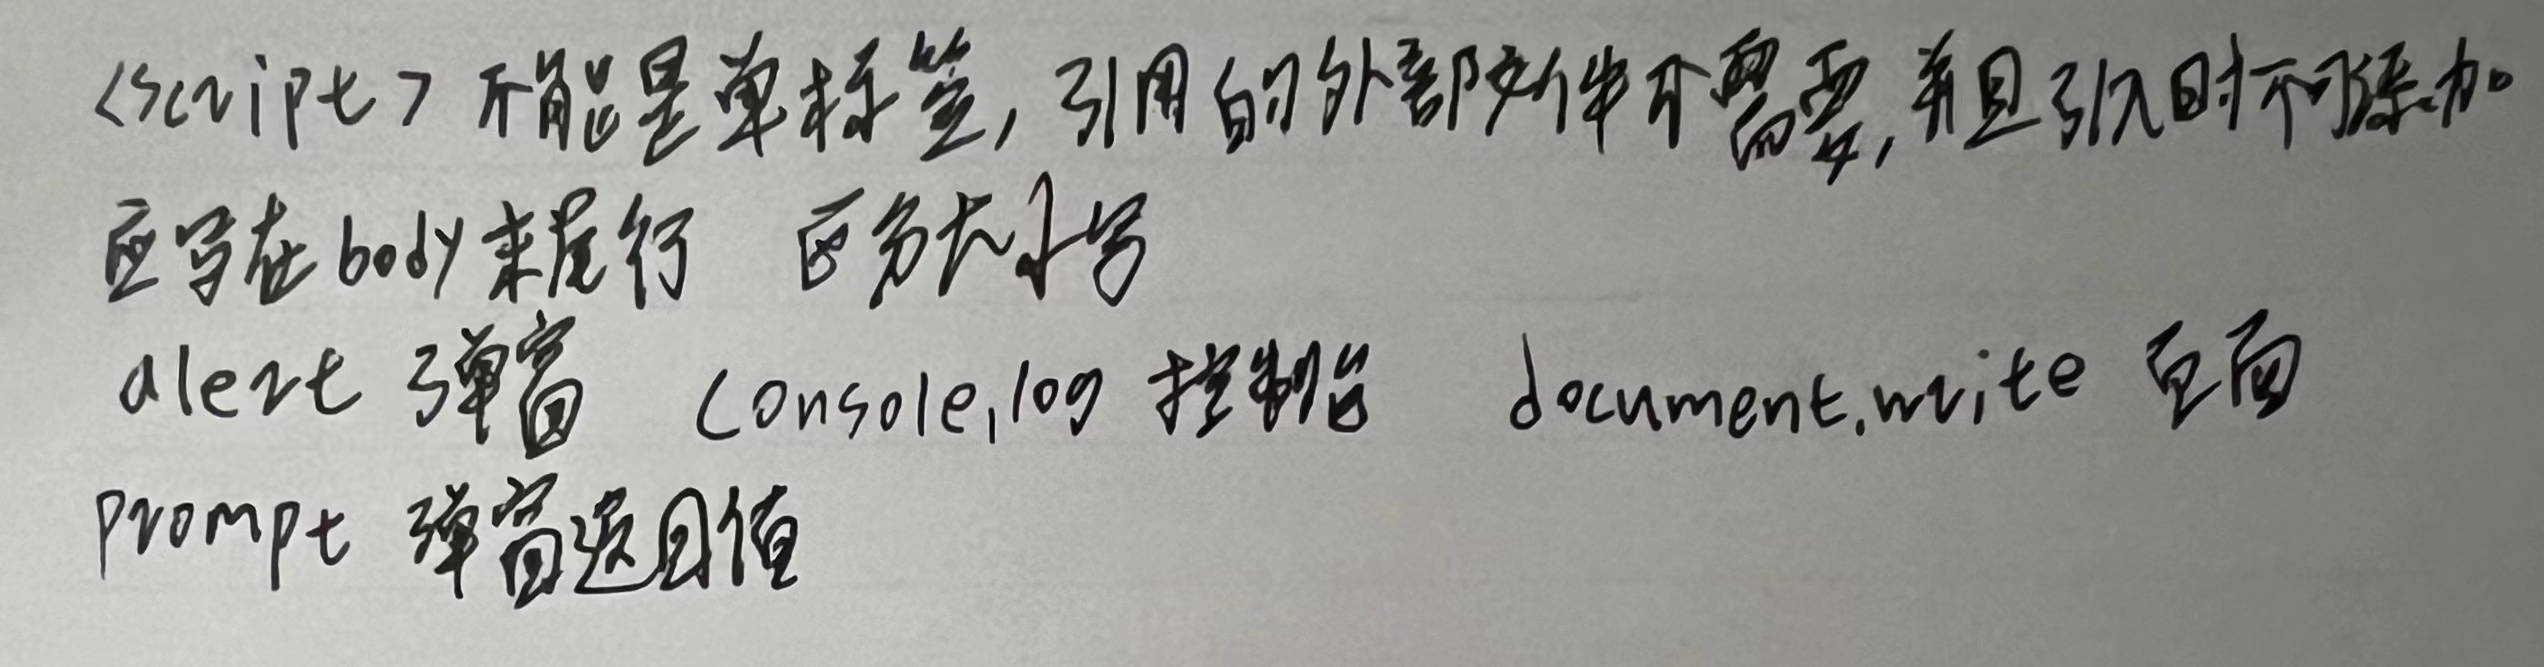 <script>不能是单标签,引用的外部文件不需要,并且引入时不可添加
应写在body末尾行 区分大小写
alert 弹窗 console.log 控制台 document.write 页面
prompt 弹窗返回值